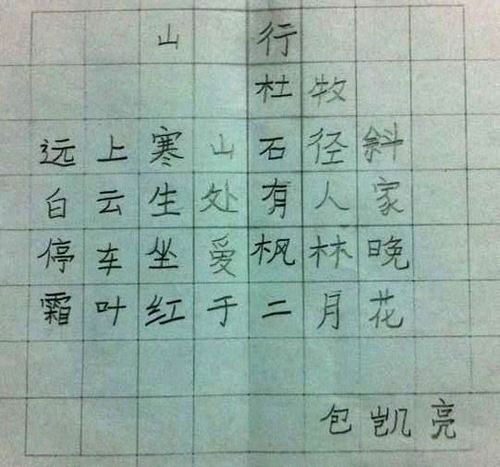 山行
杜牧
远上寒山石径斜
白云生处有人家
停车坐爱枫林晚
霜叶红于二月花
包凯亮